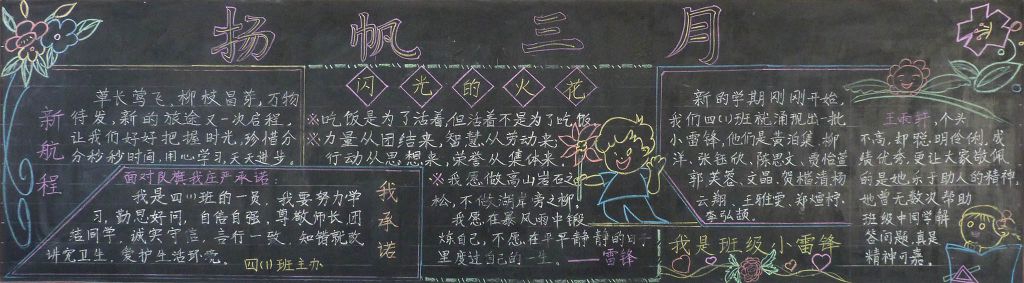 扬帆三月
新航程
草长莺飞、柳枝昌芽,万物
待发,新的旅途又一次启程,
让我们好好把握时光,珍惜分
分秒秒时间,用心学习,天天进步。
面对队旗我庄严承诺:
我是四川班的一员,我要努力学
习,勤思好问,自信自强,尊敬师长,团
结同学,诚实守信,言行一致,知错就改
讲究卫生,爱护生活环境。
四(1)班主办
我承诺
闪光的火花
※吃饭是为了活着,但活着不是为了吃饭。
※力量从团结来,智慧从劳动来,
行动从思想来,荣誉从集体来。
※我愿做高山岩石之
松,不做湖岸旁之柳,
我愿在暴风雨中锻
炼自己,不愿在平平静静的日子
里度过自己的一生。——雷锋
新的学期刚刚开始,
我们四(1)班就涌现出一批
小雷锋,他们是黄泊集、柳
洋、张钰欣、陈思文、
郭芙蓉、文晶、贺楷清、杨
云翔、王雅雯、郑烜柯、
李弘颉。
我是班级小雷锋
王雨轩,个头
不高,却聪明伶俐,成
绩优秀,更让大家敬佩
的是她乐于助人的精神,
她曾无数次帮助
班级中同学解
答问题,真是
精神可嘉。